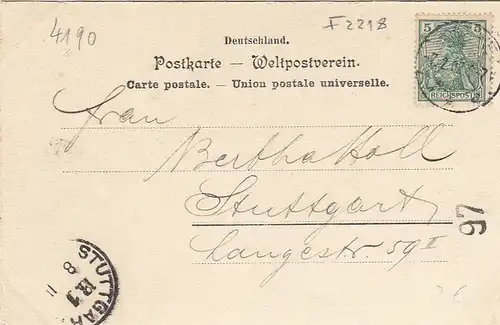 4190
F2218
Deutschland.
Postkarte — Weltpostverein.
Carte postale. — Union postale universelle.
5
REICHSPOST
Frau
Bertha Holl
Stuttgart
Langestr. 59 II
97
STUTTGA
R1
8 11